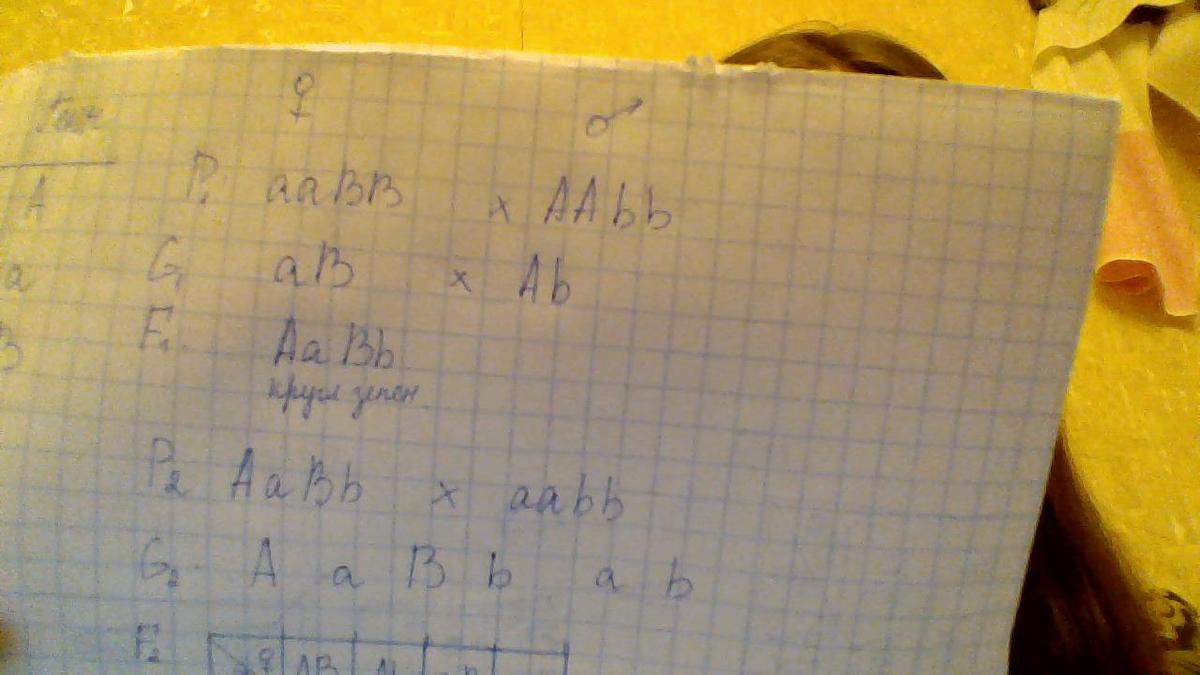 ♀ ♂
Ген
A P₁ aaBB x AAbb
a G₁ aB x Ab
B F₁ AaBb
кругл зелен
P₂ AaBb x aabb
G₂ A a B b a b
F₂ ♀ AB